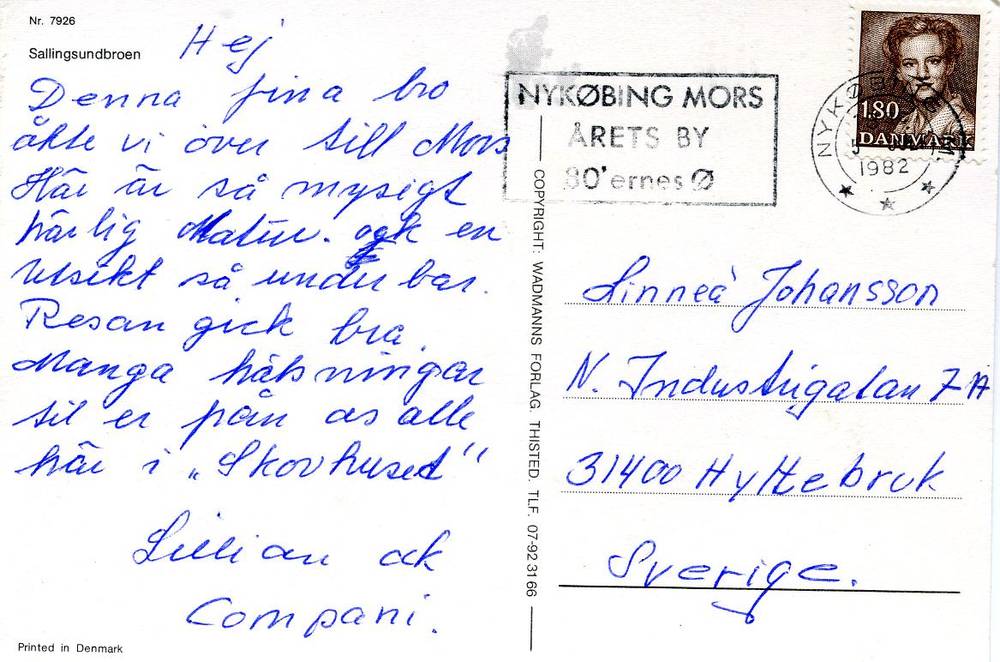 Nr. 7926
Sallingsundbroen
Hej
Denna fina bro
åkte vi över till Mors
Här är så mysigt
härlig Natur. och en
utsikt så underbar.
Resan gick bra.
Manga hälsningar
til er från os alle
här i „Skovhuset"
Lillian ock
Compani.
Printed in Denmark
COPYRIGHT: WADMANNS FORLAG. THISTED. TLF. 07-92 31 66
NYKØBING MORS
ÅRETS BY
80'ernes Ø
1.80
DANMARK
NYKØBING M
1982
Linneá Johansson
N. Industrigatan 7A
31400 Hyltebruk
Sverige.